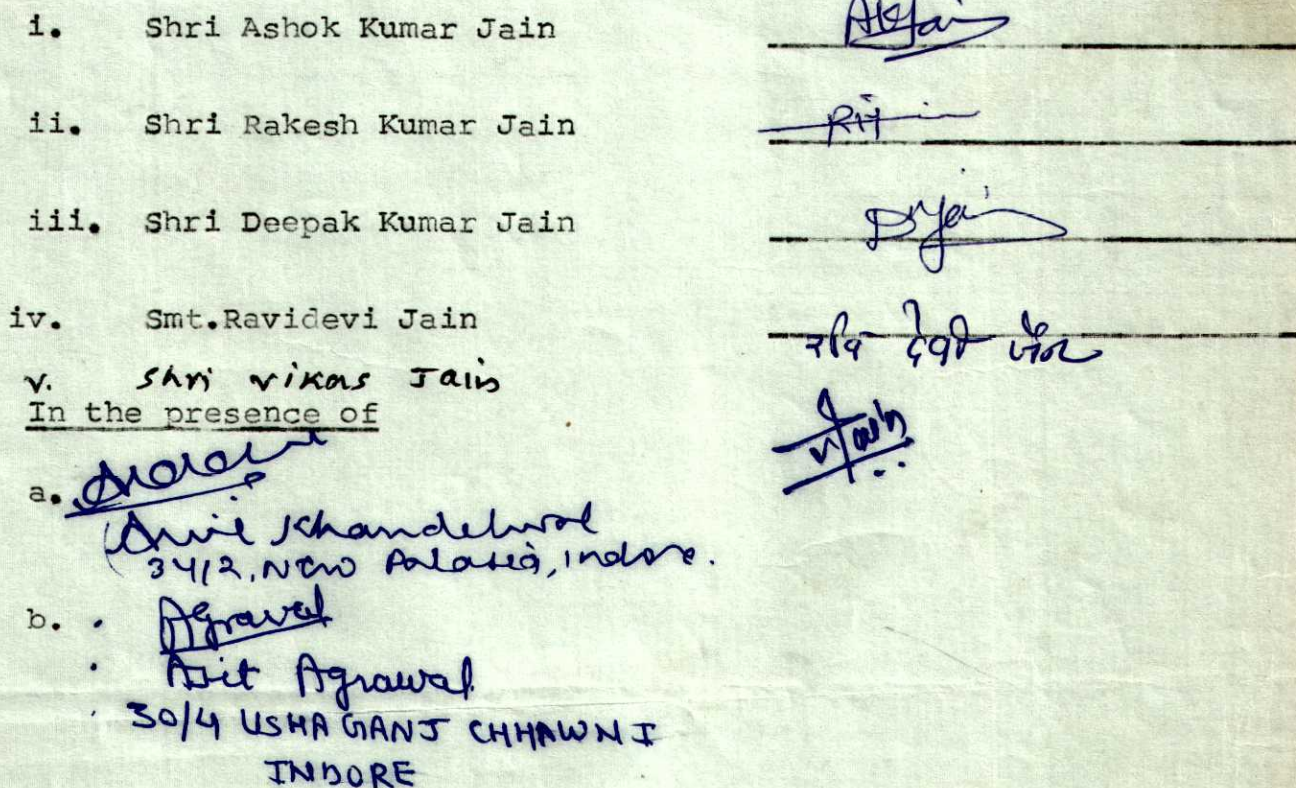 i. Shri Ashok Kumar Jain AKJain
ii. Shri Rakesh Kumar Jain
iii. Shri Deepak Kumar Jain DKJain
iv. Smt.Ravidevi Jain रवि देवी जैन
v. Shri vikas Jain vJain
In the presence of
a.
Anil Khandelwal
34/2, New Palasia, Indore.
b. Agrawal
Asit Agrawal
30/4 USHA GANJ CHHAWNI
INDORE